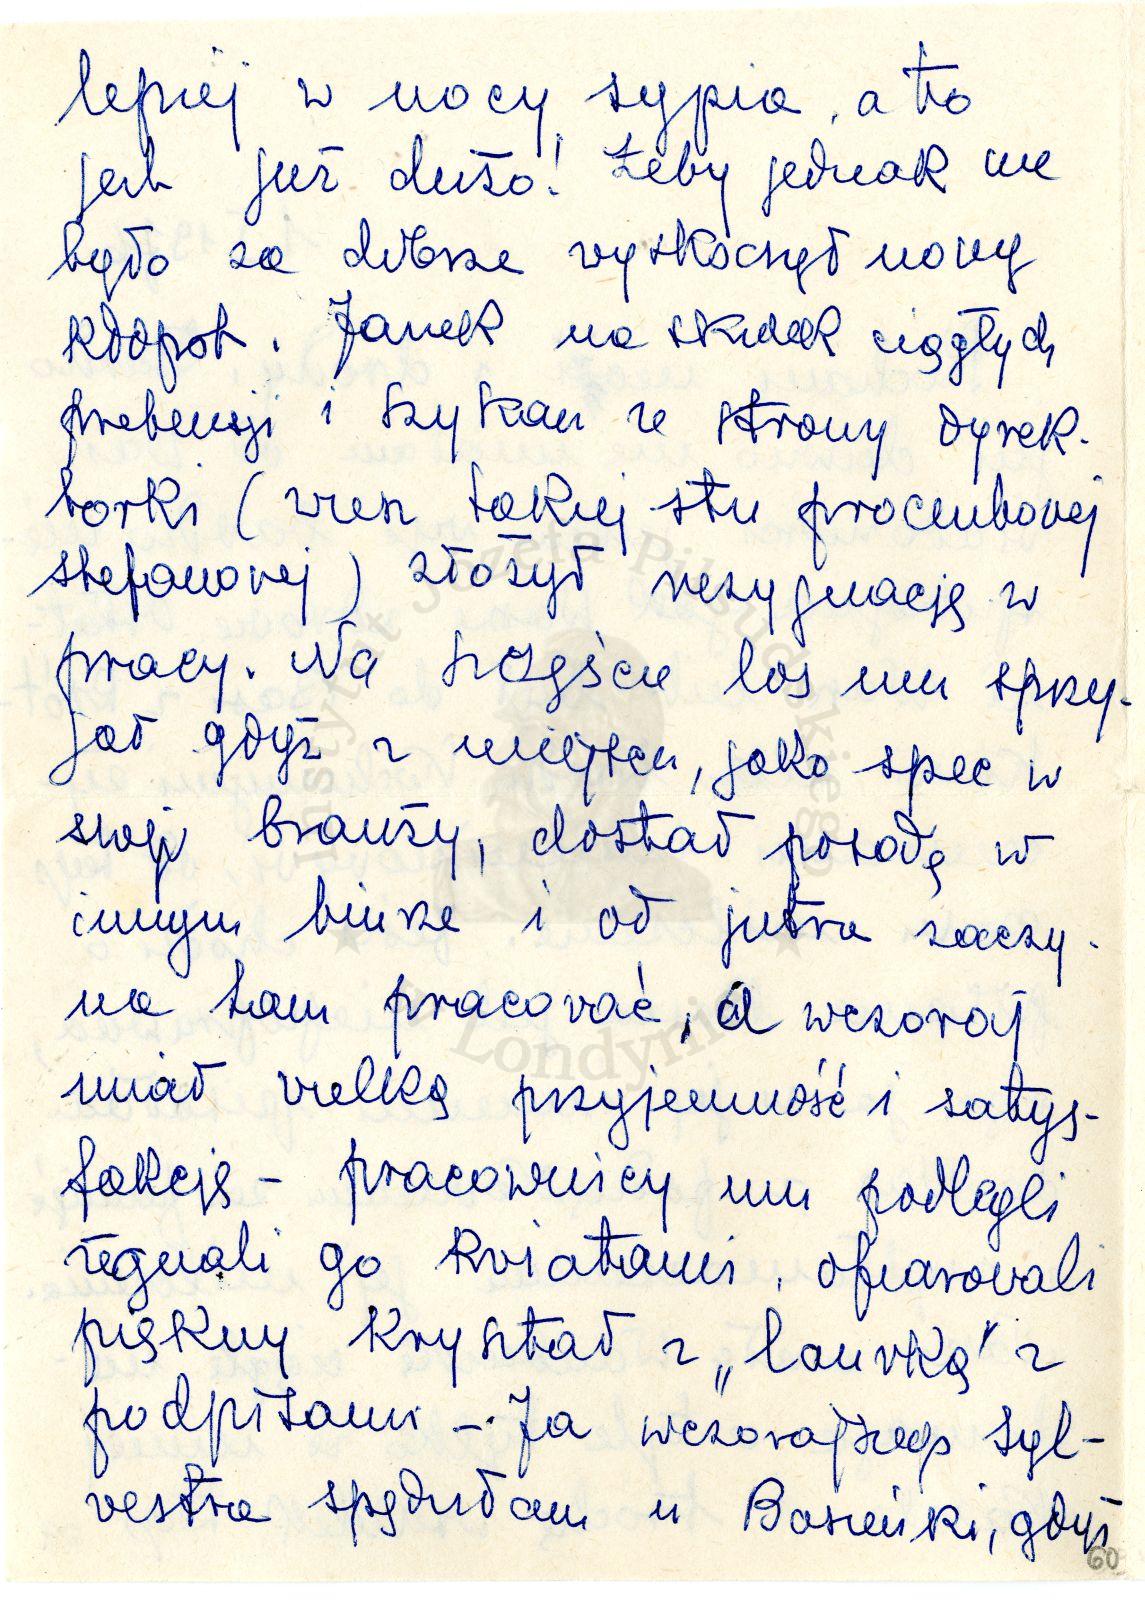 lepiej w nocy sypia, a to
jest już dużo! Żeby jednak nie
było za dobrze wyskoczył nowy
kłopot. Janek na skutek ciągłych
pretensji i szykan ze strony dyrek-
torki (wiesz takiej stu procentowej
stefanowej) złożył rezygnację w
pracy. Na szczęście los mu sprzy-
jał gdyż z miejsca, jako spec w
swej branży, dostał posadę w
innym biurze i od jutra zaczy-
na tam pracować, a wczoraj
miał wielką przyjemność i satys-
fakcję – pracownicy mu podlegli
żegnali go kwiatami, ofiarowali
piękny kryształ z „laurką" z
podpisami –. Ja wczorajszego Syl-
westra spędziłam u Basieńki, gdyż
60
Instytut Józefa Piłsudskiego
w Londynie